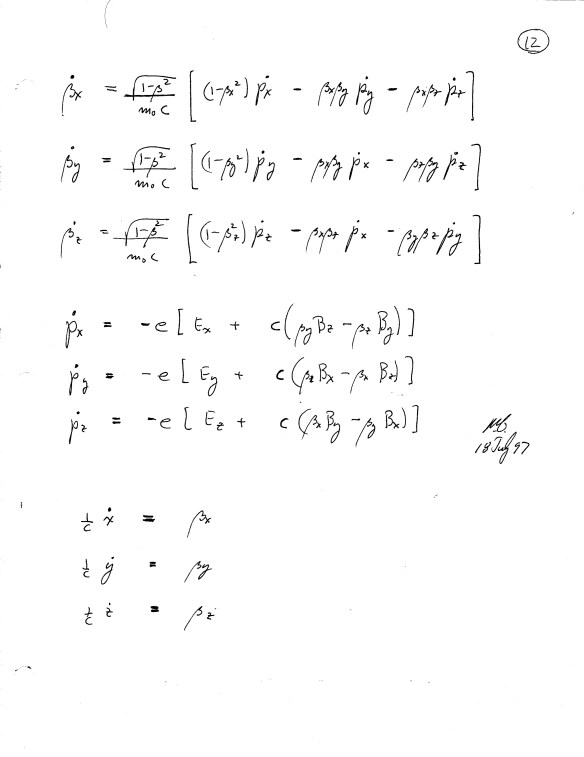 12
β̇x = √(1-β²)/m₀c [ (1-βx²) ṗx - βxβy ṗy - βxβz ṗz ]
β̇y = √(1-β²)/m₀c [ (1-βy²) ṗy - βxβy ṗx - βzβy ṗz ]
β̇z = √(1-β²)/m₀c [ (1-βz²) ṗz - βxβz ṗx - βyβz ṗy ]
ṗx = -e [ Ex + c(βyBz - βzBy) ]
ṗy = -e [ Ey + c(βzBx - βxBz) ]
ṗz = -e [ Ez + c(βxBy - βyBx) ]
18 July 97
1/c ẋ = βx
1/c ẏ = βy
1/c ż = βz